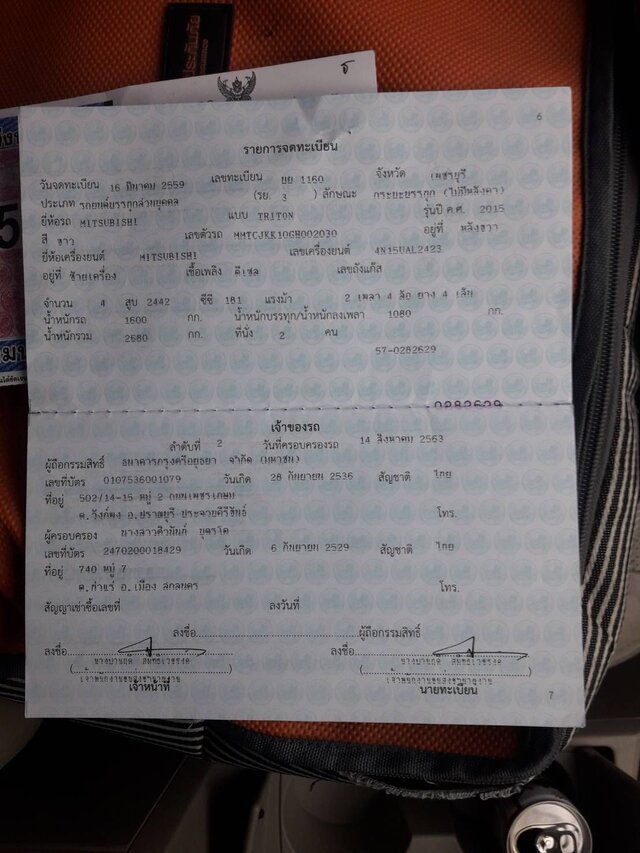 ประกันภัย
6
รายการจดทะเบียน
วันจดทะเบียน 16 มีนาคม 2559 เลขทะเบียน 1160 จังหวัด เพชรบุรี
ประเภท รถยนต์บรรทุกส่วนบุคคล (รย. 3 ) ลักษณะ กระบะบรรทุก (ไม่มีหลังคา)
ยี่ห้อรถ MITSUBISHI แบบ TRITON รุ่นปี ค.ศ. 2015
สี ขาว เลขตัวรถ MMTCJKK10GH002030 อยู่ที่ หลังขวา
ยี่ห้อเครื่องยนต์ MITSUBISHI เลขเครื่องยนต์ 4N15UAL2423
อยู่ที่ ซ้ายเครื่อง เชื้อเพลิง ดีเซล เลขถังแก๊ส
จำนวน 4 สูบ 2442 ซีซี 181 แรงม้า 2 เพลา 4 ล้อ ยาง 4 เส้น
น้ำหนักรถ 1600 กก. น้ำหนักบรรทุก/น้ำหนักลงเพลา 1080 กก.
น้ำหนักรวม 2680 กก. ที่นั่ง 2 คน
57-0282629
0282629
เจ้าของรถ
ลำดับที่ 2 วันที่ครอบครองรถ 14 สิงหาคม 2563
ผู้ถือกรรมสิทธิ์ ธนาคารกรุงศรีอยุธยา จำกัด (มหาชน)
เลขที่บัตร 0107536001079 วันเกิด 28 กันยายน 2536 สัญชาติ ไทย
ที่อยู่ 502/14-15 หมู่ 2 ถนนเพชรเกษม
ต.วังก์พง อ.ปราณบุรี ประจวบคีรีขันธ์ โทร.
ผู้ครอบครอง
เลขที่บัตร 2470200018429 วันเกิด 6 กันยายน 2529 สัญชาติ ไทย
ที่อยู่ 740 หมู่ 7
อ.เมือง สกลนคร โทร.
สัญญาเช่าซื้อเลขที่ ลงวันที่
ลงชื่อ ผู้ถือกรรมสิทธิ์
ลงชื่อ ลงชื่อ
เจ้าหน้าที่ นายทะเบียน
7